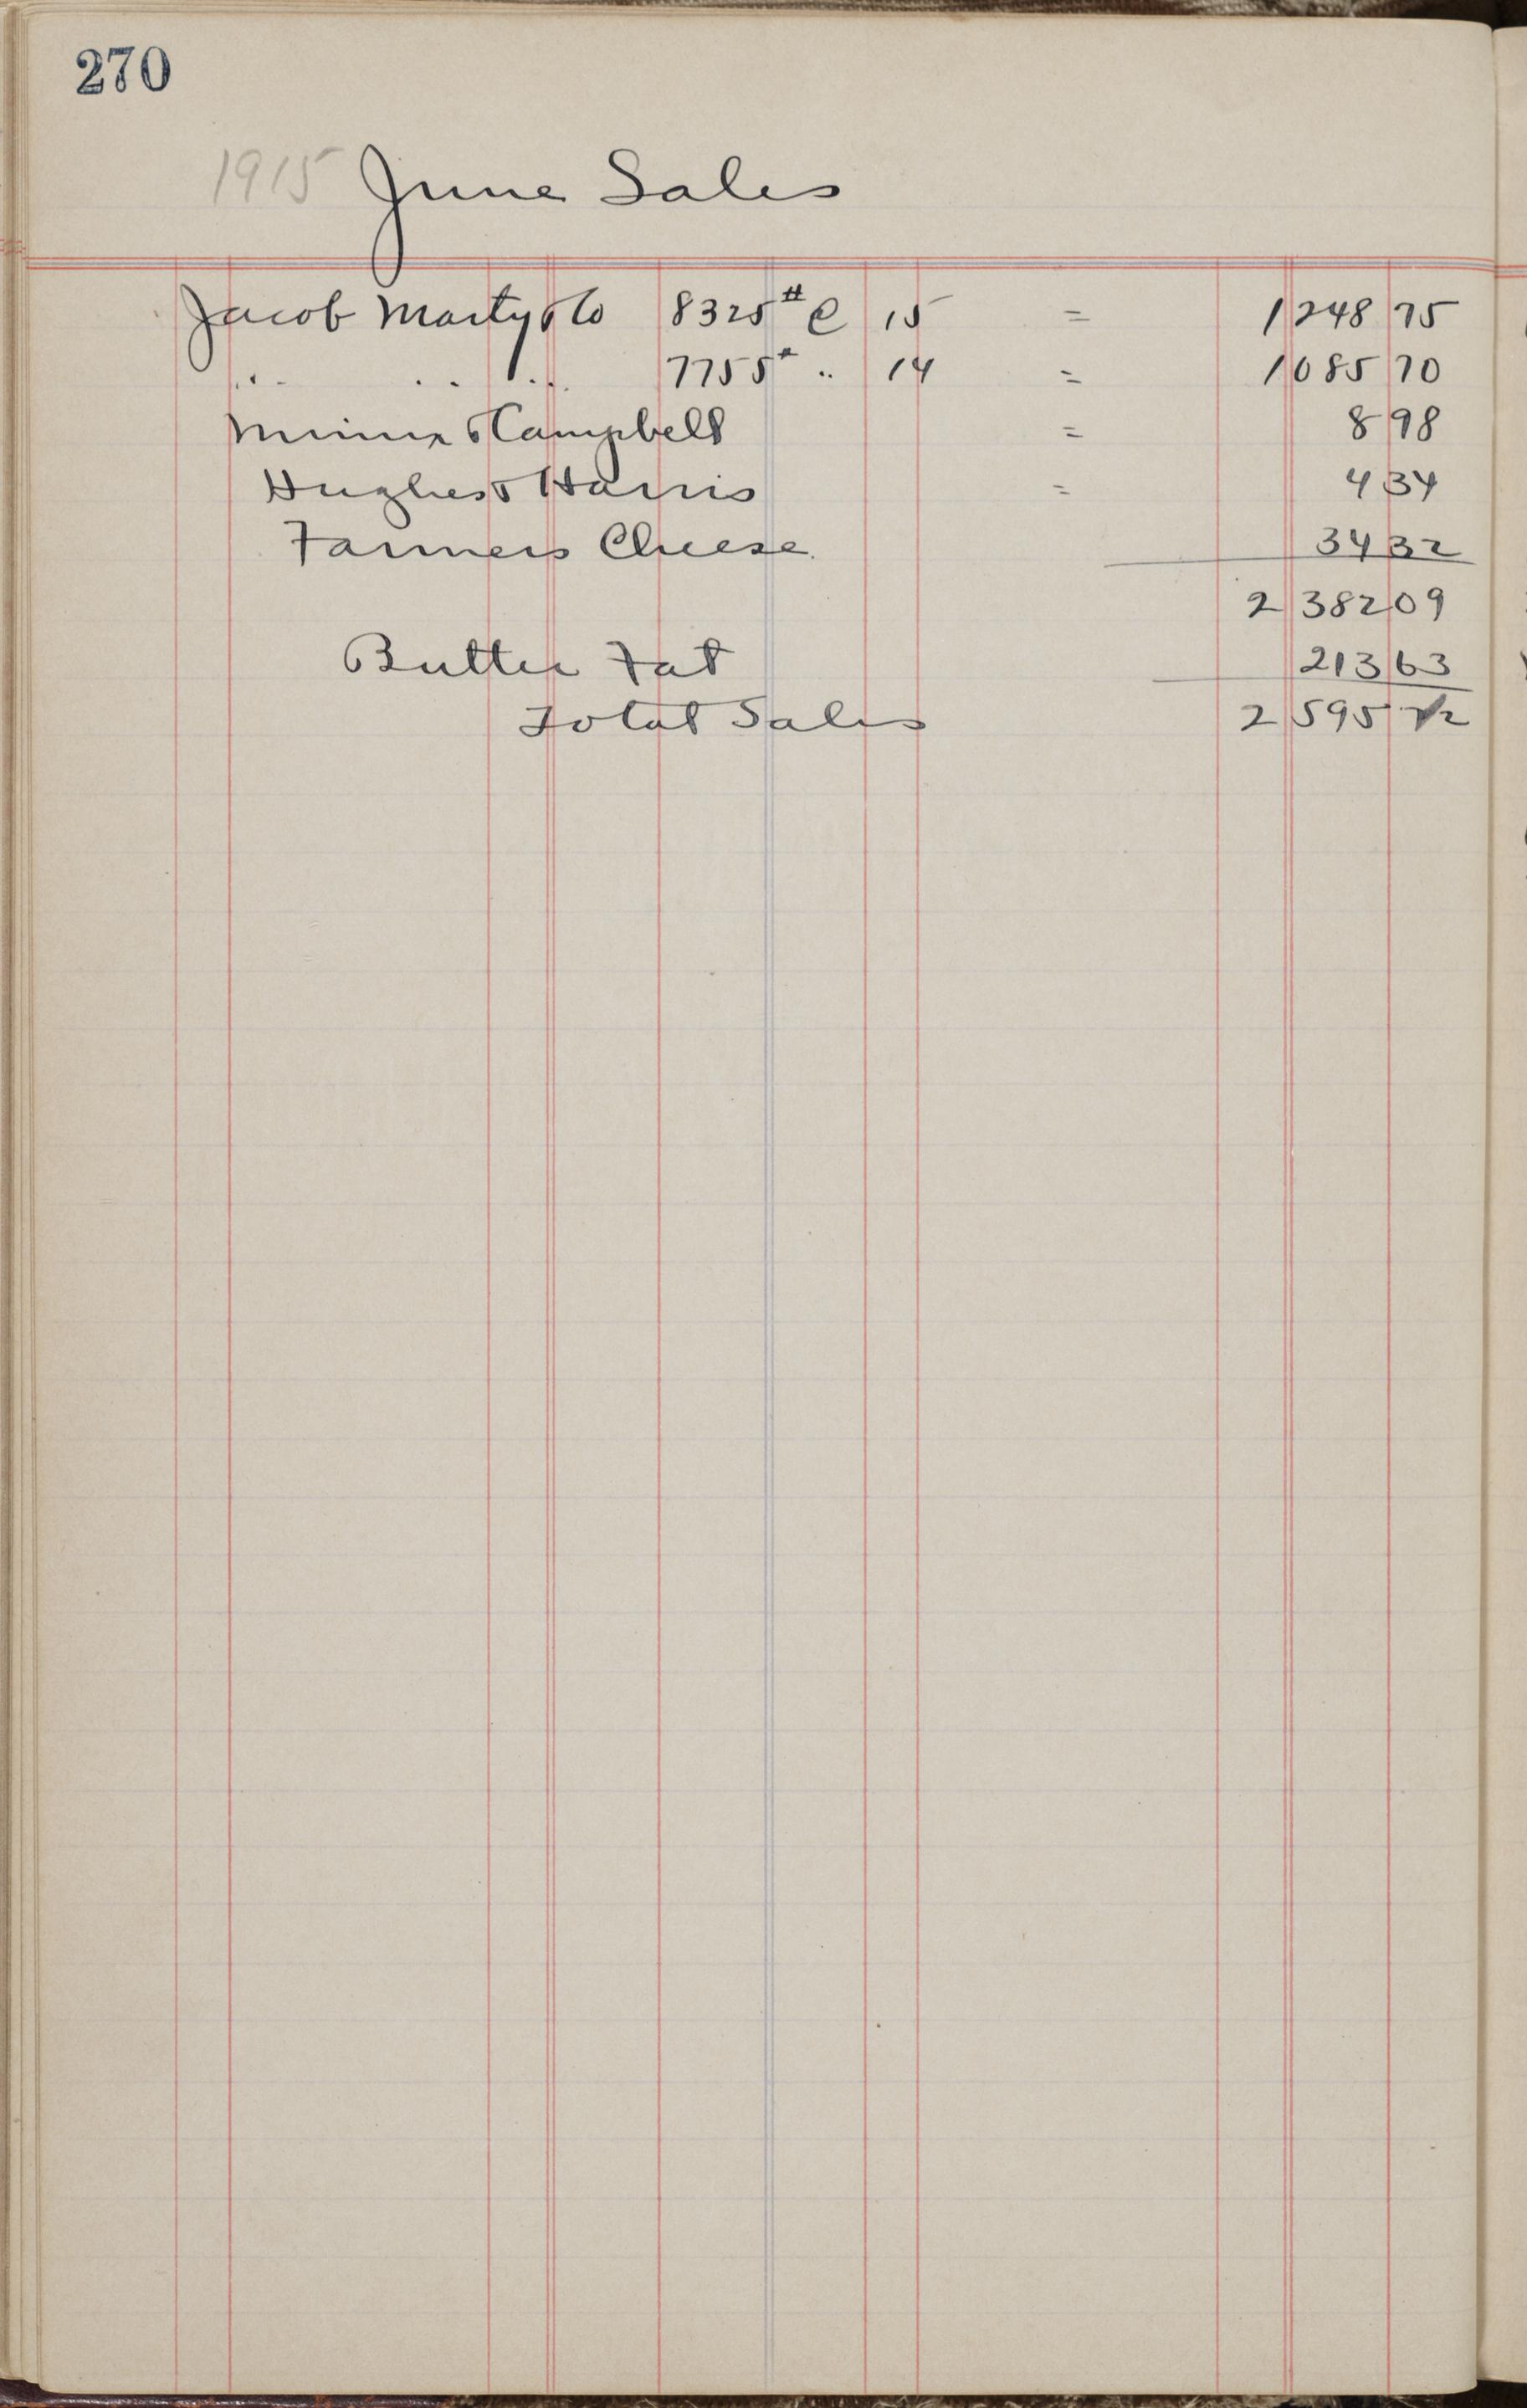 270
1915 June Sales
Jacob Marty & Co 8325# @ 15 = 1248 75
" " " 7755# " 14 = 1085 70
& Campbell = 8 98
Hughes & Harris = 4 34
Farmers Cheese 34 32
2382 09
Butter Fat 213 63
Total Sales 2595 72